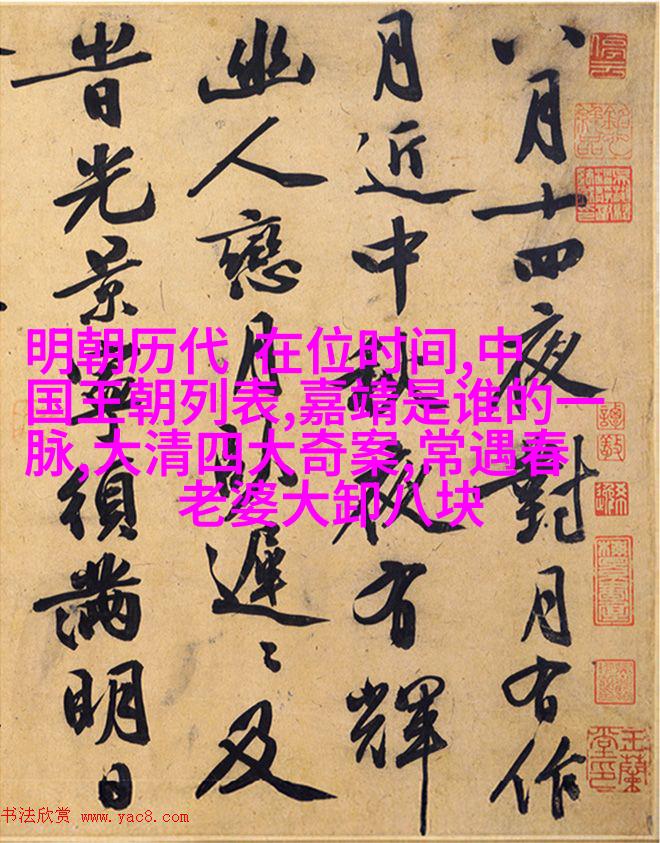 八月十四夜對月有作
月近中秋夜有輝
幽人戀月遲〻及
旹光景寧須滿明日
明朝历代 在位时间,中
国王朝列表,嘉靖是谁的一
脉,大清四大奇案,常遇春
老婆大卸八块
停雲
玉蘭堂印
书法欣赏 www.yac8.com